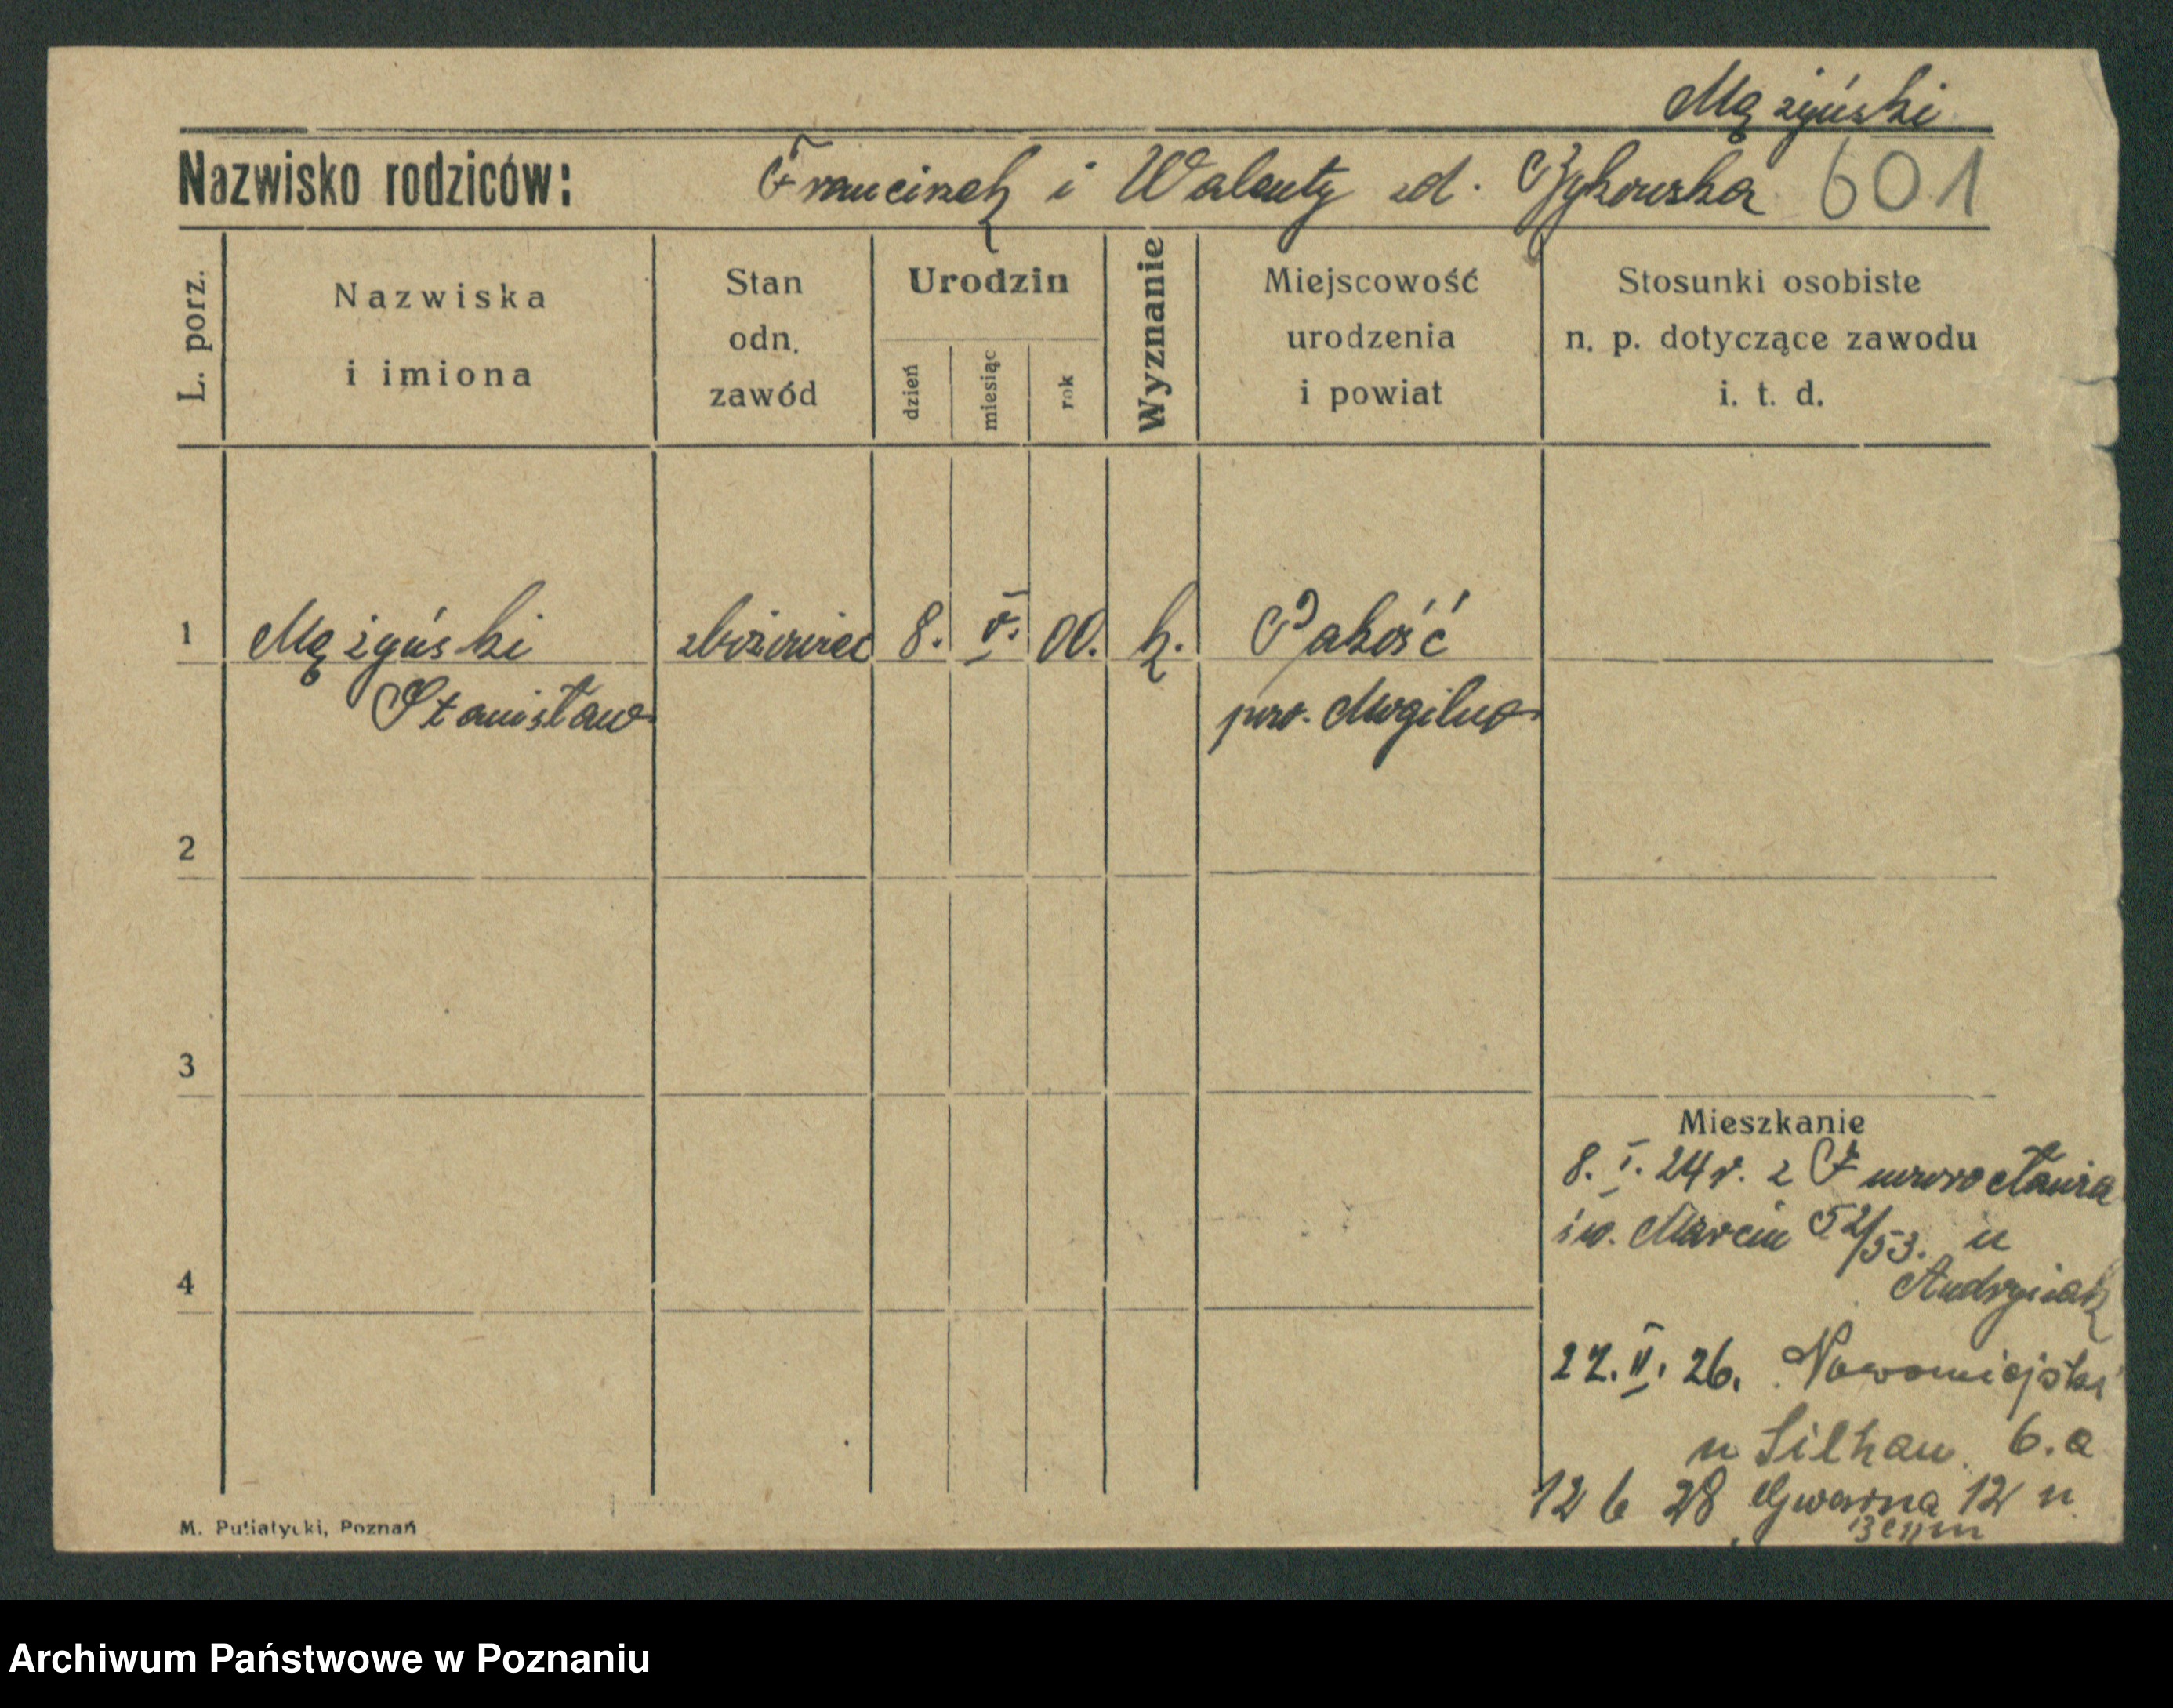 Mążyński
Nazwisko rodziców: Franciszek i Walenty zd. Bykowska 601
L. porz.
Nazwiska
i imiona
Stan
odn.
zawód
Urodzin
dzień
miesiąc
rok
Wyznanie
Miejscowość
urodzenia
i powiat
Stosunki osobiste
n. p. dotyczące zawodu
i. t. d.
1 Mążyński zbożowiec 8. V. 00. k. Pakość
Stanisław pow. Mogilno
2
3
Mieszkanie
8. I. 24 r. z Inowrocławia
św. Marcin 52/53. u
4
Andrzejak
22. II. 26. Nowomiejski
u Silhan. 6.a
12 6 28 Gwarna 12 u
M. Putiatycki, Poznań
Archiwum Państwowe w Poznaniu